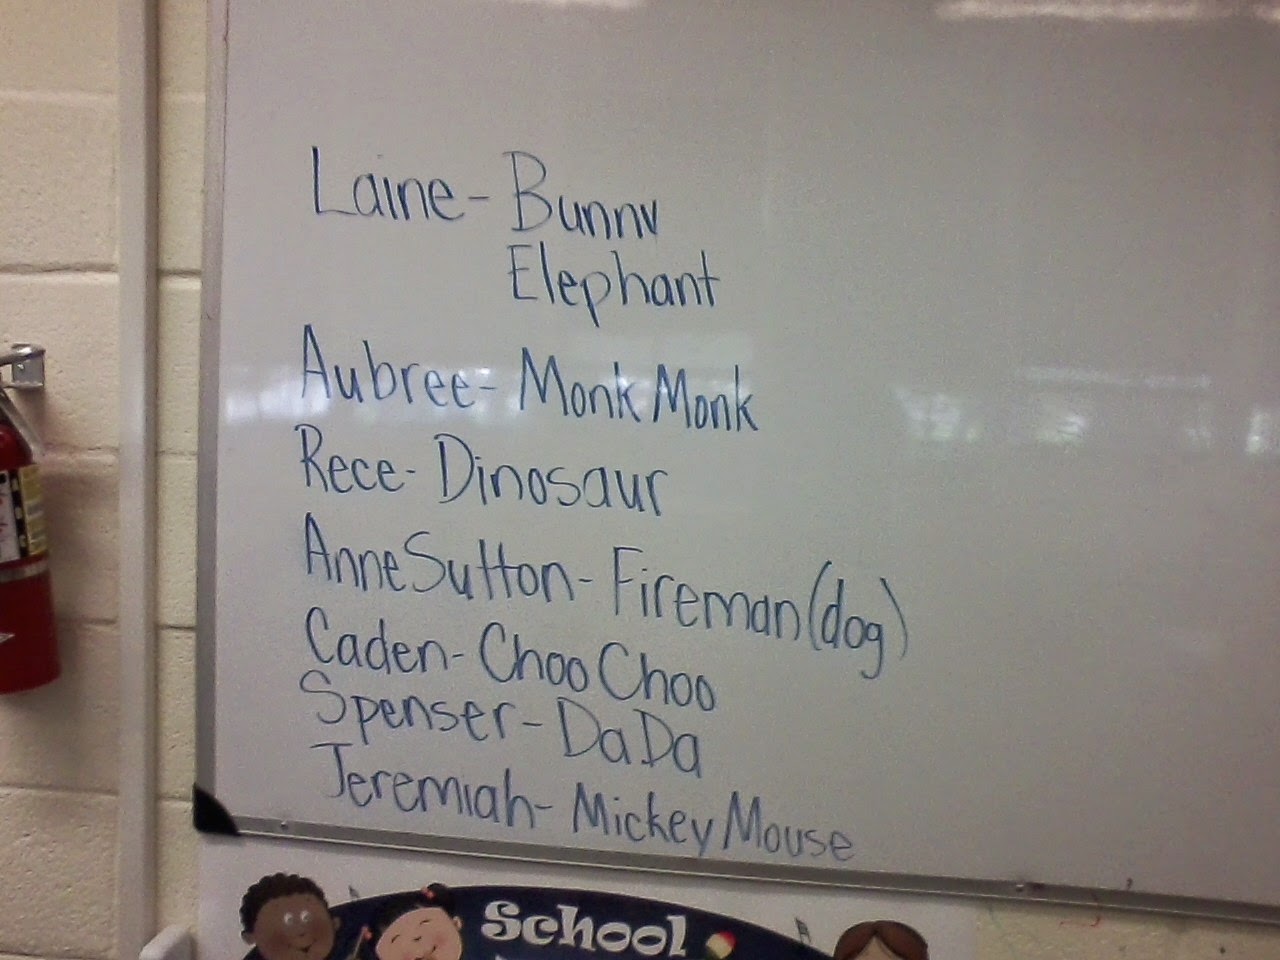 Laine- Bunny
Elephant
Aubree- Monk Monk
Rece- Dinosaur
AnneSutton- Fireman (dog)
Caden- Choo Choo
Spenser- DaDa
Jeremiah- Mickey Mouse
School